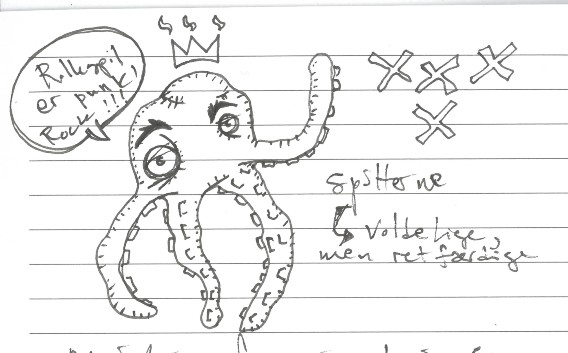 Rollespil
er punk!
Rock!!!
Spotterne
↳ Voldelige,
men retfærdige